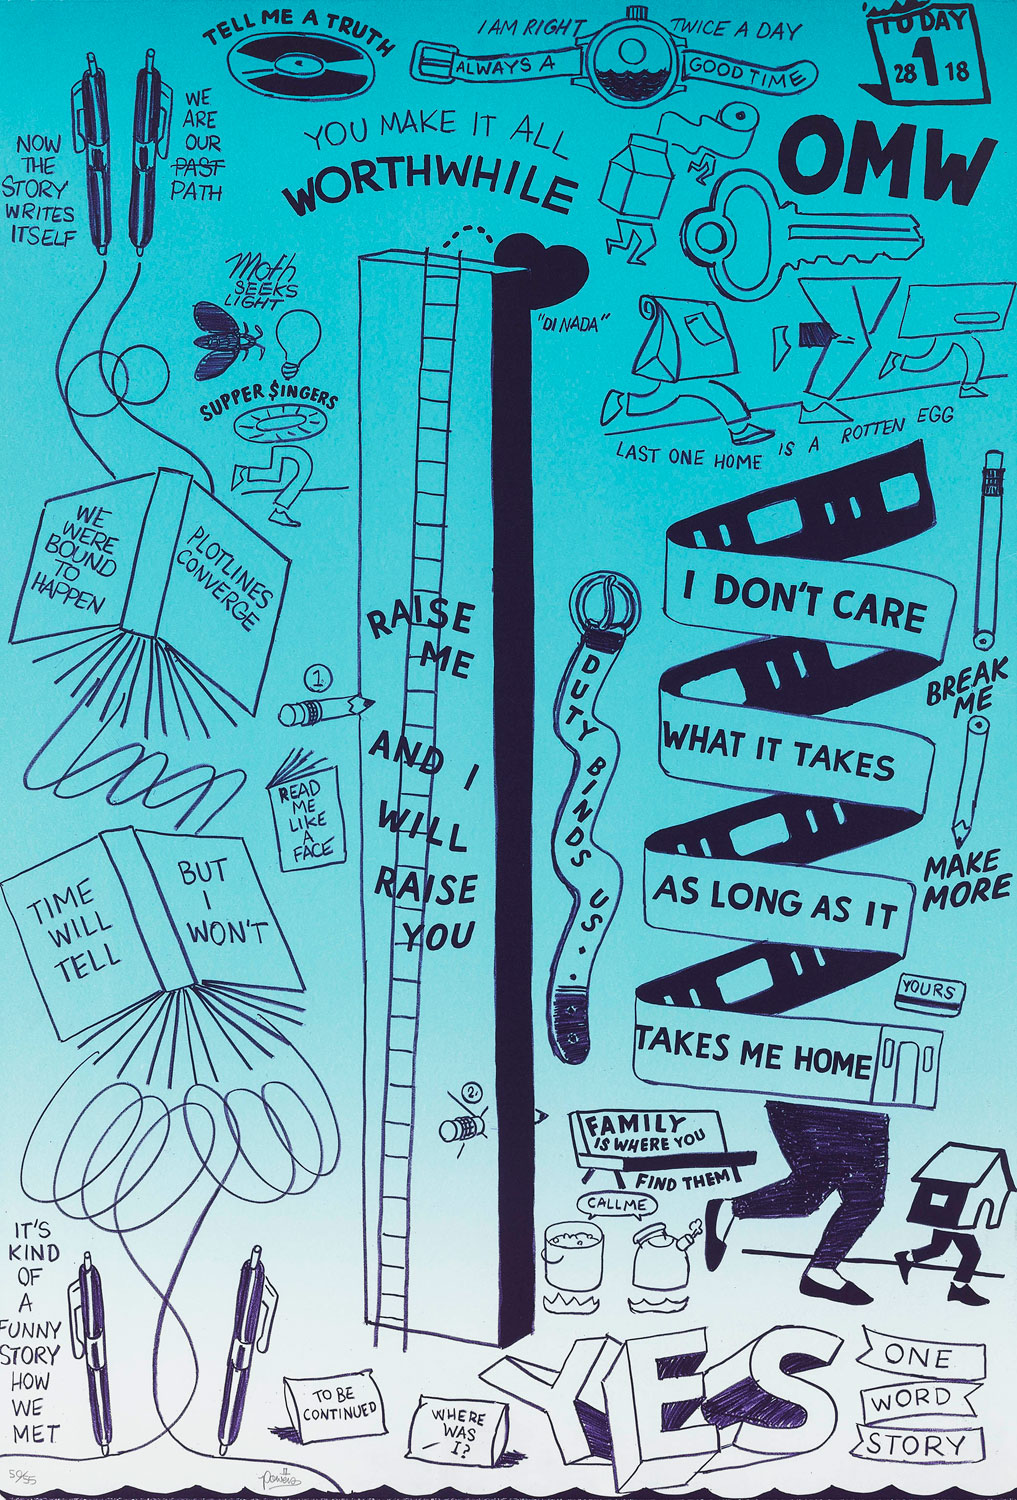 TELL ME A TRUTH
I AM RIGHT TWICE A DAY
ALWAYS A GOOD TIME
TODAY
28 1 18
NOW
THE
STORY
WRITES
ITSELF
WE
ARE
OUR
PAST
PATH
YOU MAKE IT ALL
WORTHWHILE
OMW
Moth
SEEKS
LIGHT
"DI NADA"
SUPPER $INGERS
LAST ONE HOME IS A ROTTEN EGG
WE
WERE
BOUND
TO
HAPPEN
PLOTLINES
CONVERGE
RAISE
ME
AND I
WILL
RAISE
YOU
1.
READ
ME
LIKE
A
FACE
DUTY BINDS US.
I DON'T CARE
WHAT IT TAKES
AS LONG AS IT
TAKES ME HOME
BREAK
ME
MAKE
MORE
YOURS
TIME
WILL
TELL
BUT
I
WON'T
2.
FAMILY
IS WHERE YOU
FIND THEM
CALL ME
IT'S
KIND
OF
A
FUNNY
STORY
HOW
WE
MET
TO BE
CONTINUED
WHERE
WAS
I?
YES
ONE
WORD
STORY
50/55
Powers